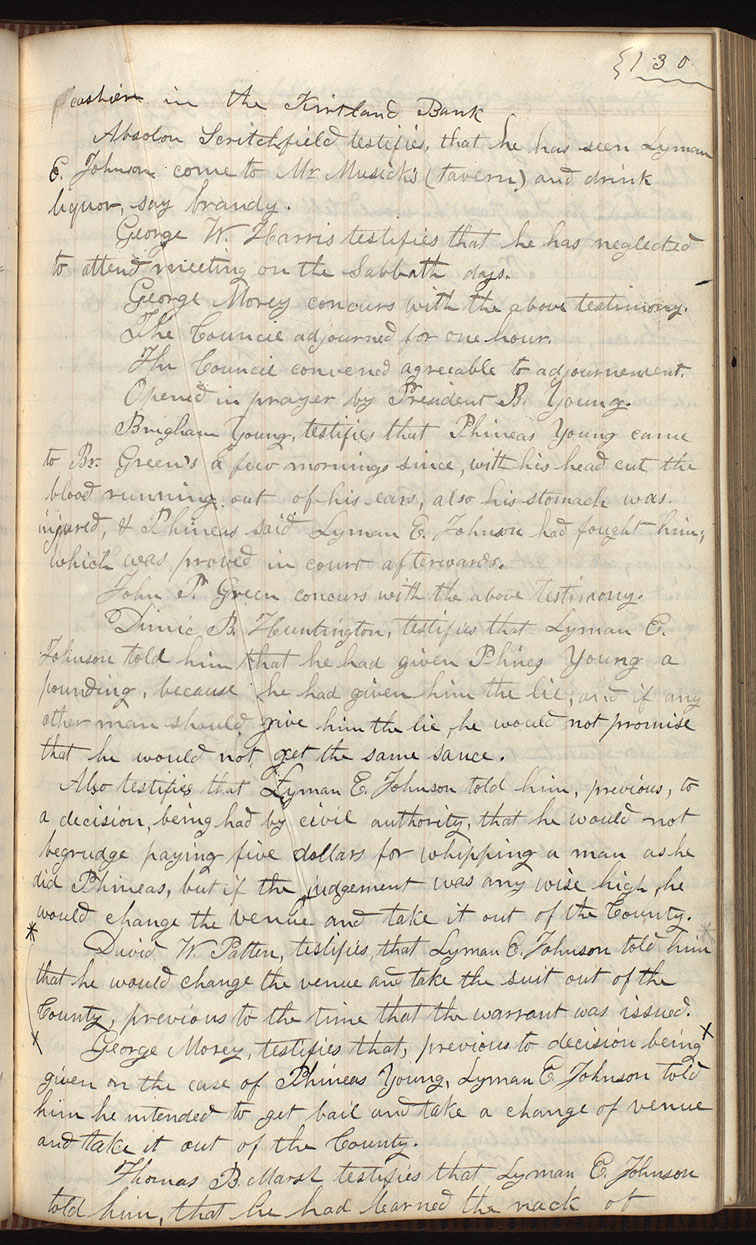 130
cashier in the Kirtland Bank
Absolon Scritchfield testifies, that he has seen Lyman
E. Johnson come to Mr Musick's (tavern) and drink
liquor, say brandy.
George W. Harris testifies that he has neglected
to attend meeting on the Sabbath days.
George Morey concurs with the above testimony.
The Council adjourned for one hour.
The Council convened agreeable to adjournement.
Opened in prayer by President B. Young.
Brigham Young, testifies that Phineas Young came
to Br. Green's a few mornings since, with his head cut the
blood running out of his ears, also his stomach was
injured, & Phineas said Lyman E. Johnson had fought him,
which was proved in court afterwards.
John P. Green concurs with the above testimony.
Dimic B. Huntington, testifies that Lyman E.
Johnson told him that he had given Phines Young a
pounding, because he had given him the lie, and if any
other man should give him the lie, he would not promise
that he would not get the same sauce.
Also testifies that Lyman E. Johnson told him, previous, to
a decision, being had by civil authority, that he would not
begrudge paying five dollars for whipping a man as he
did Phineas, but if the judgement was any wise high, he
would change the venue and take it out of the County.
* David W. Patten, testifies, that Lyman E. Johnson told him *
that he would change the venue and take the suit out of the
County, previous to the time that the warrant was issued.
x George Morey, testifies that, previous to decision being x
given on the case of Phineas Young, Lyman E Johnson told
him he intended to get bail and take a change of venue
and take it out of the County.
Thomas B. Marsh testifies that Lyman E. Johnson
told him, that he had learned the nack of